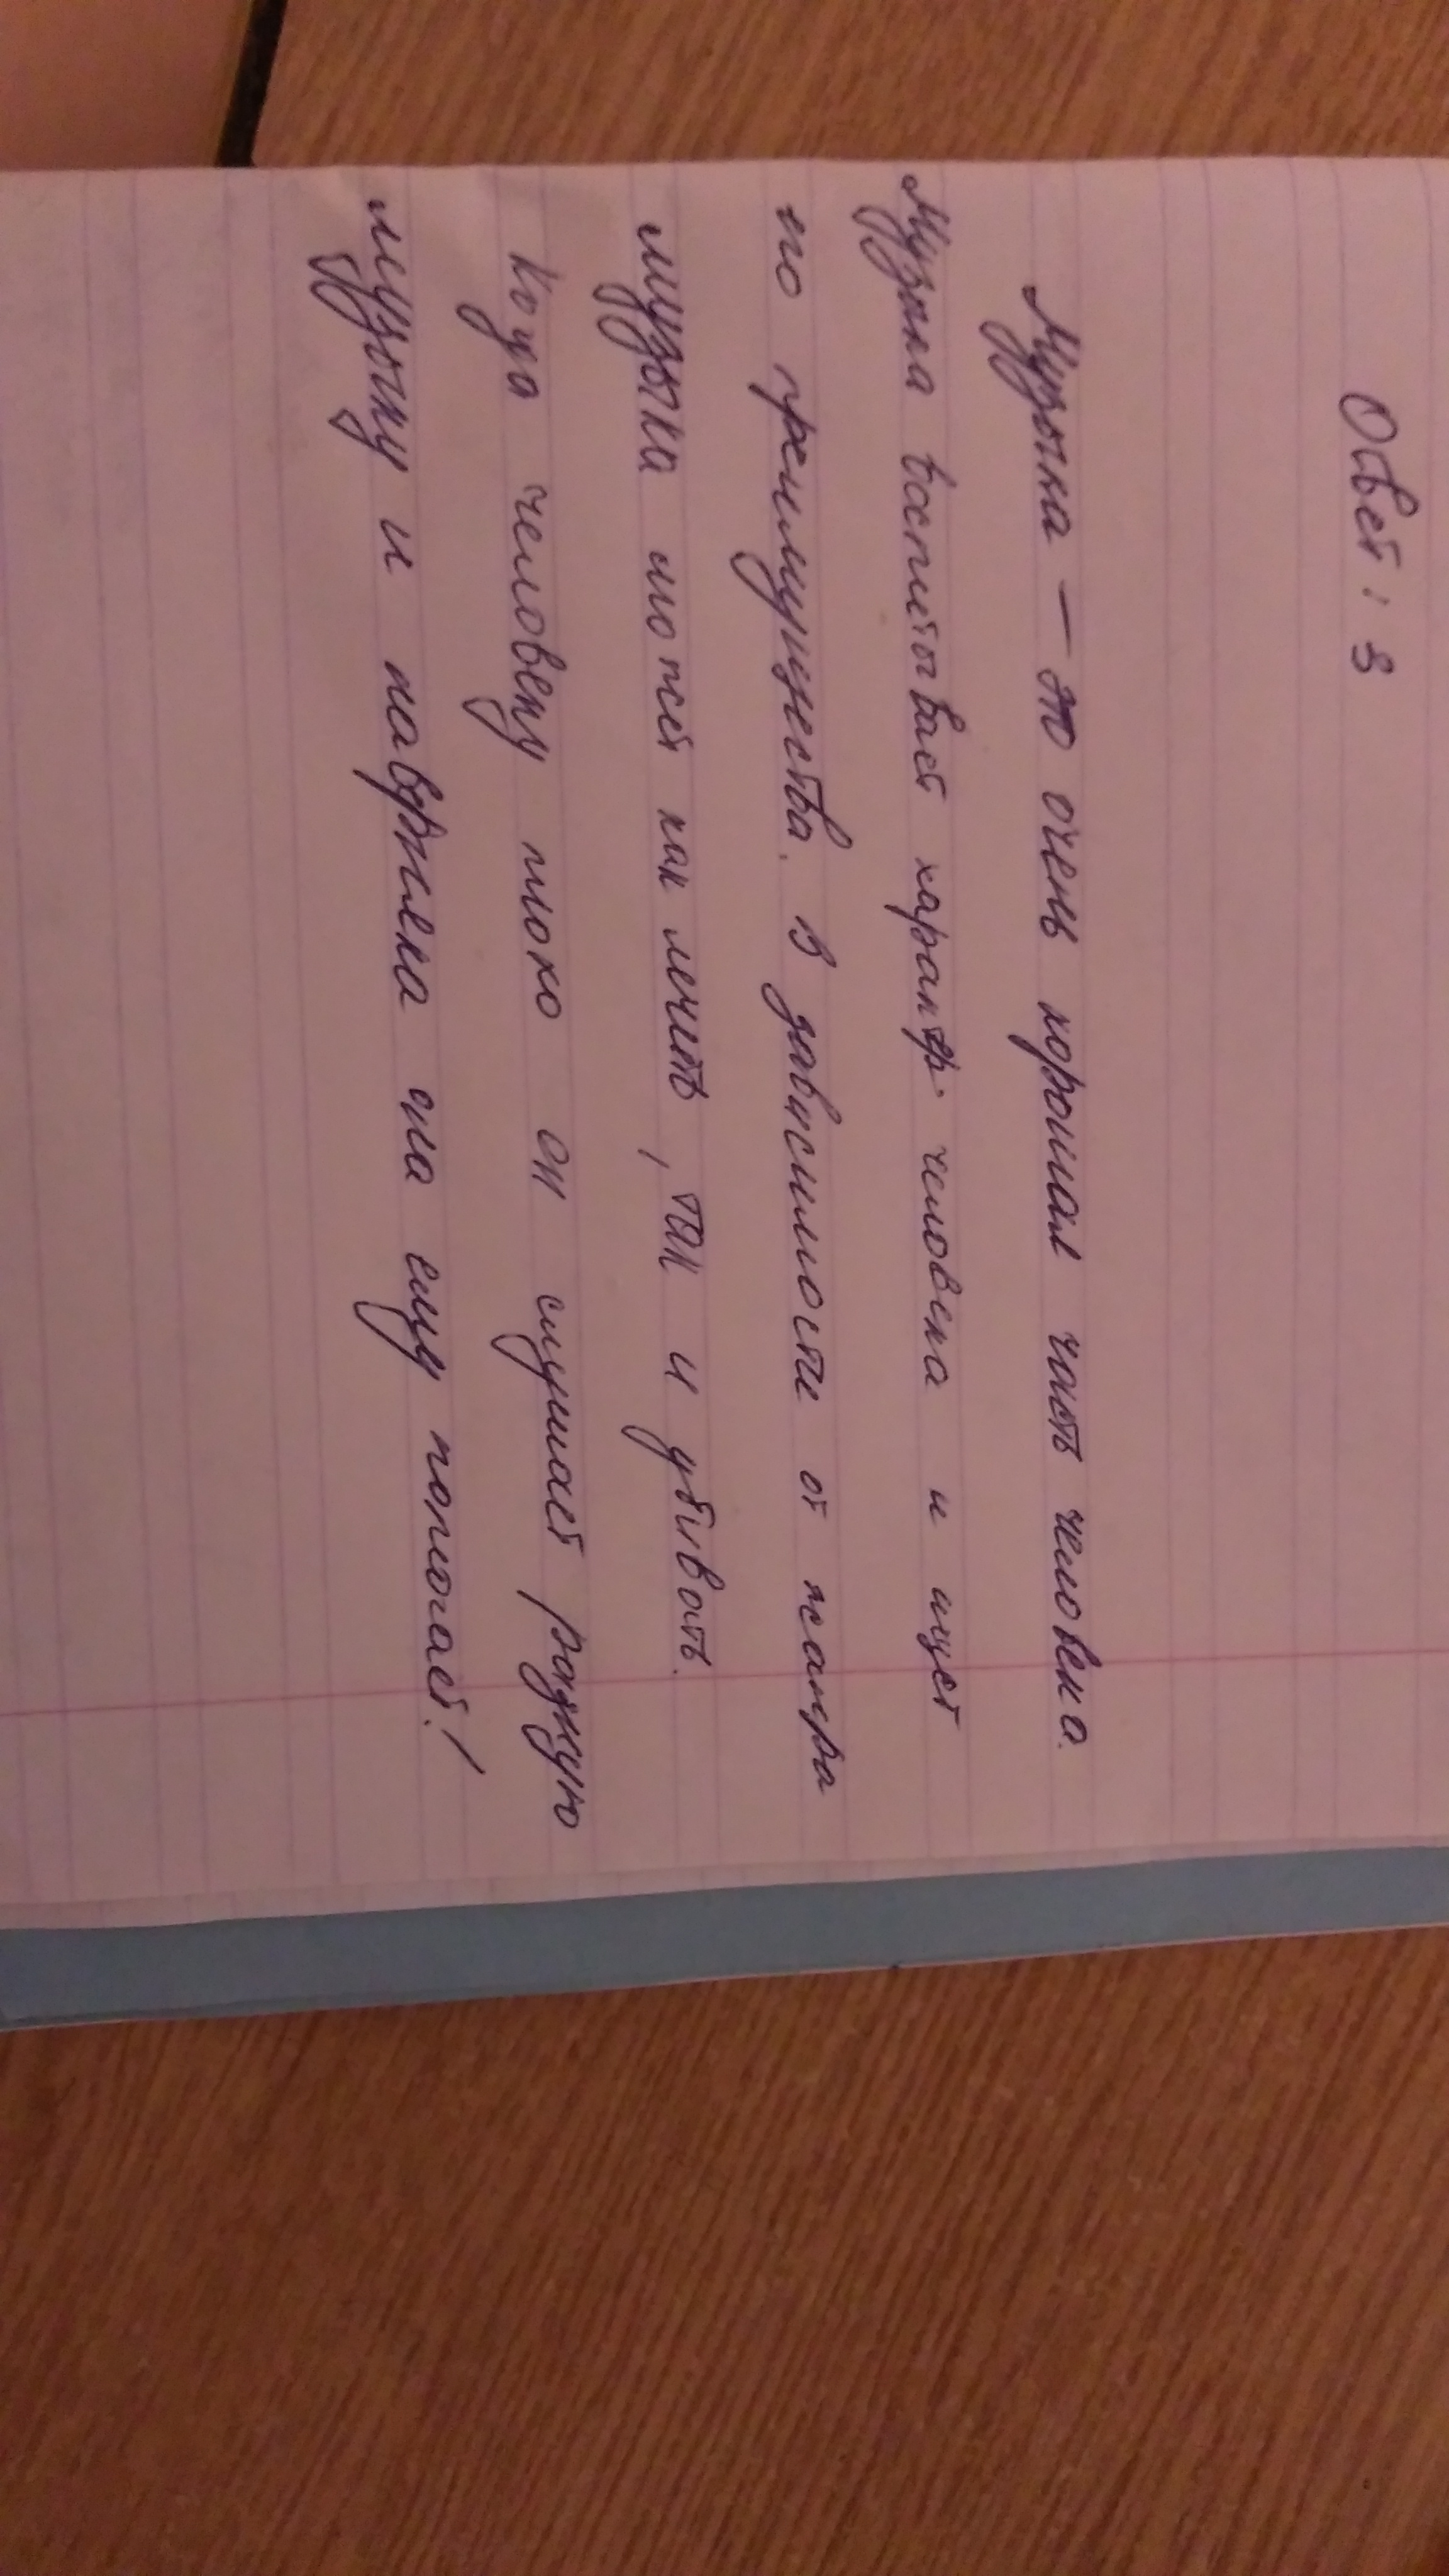 Ответ: 3
Музыка — это очень хорошая часть человека.
Музыка воспитывает характер человека и ищет
по преимущества. В зависимости от жанра
музыка может как лечить, так и убивать.
Когда человеку плохо он слушает разную
музыку и она ему помогает!